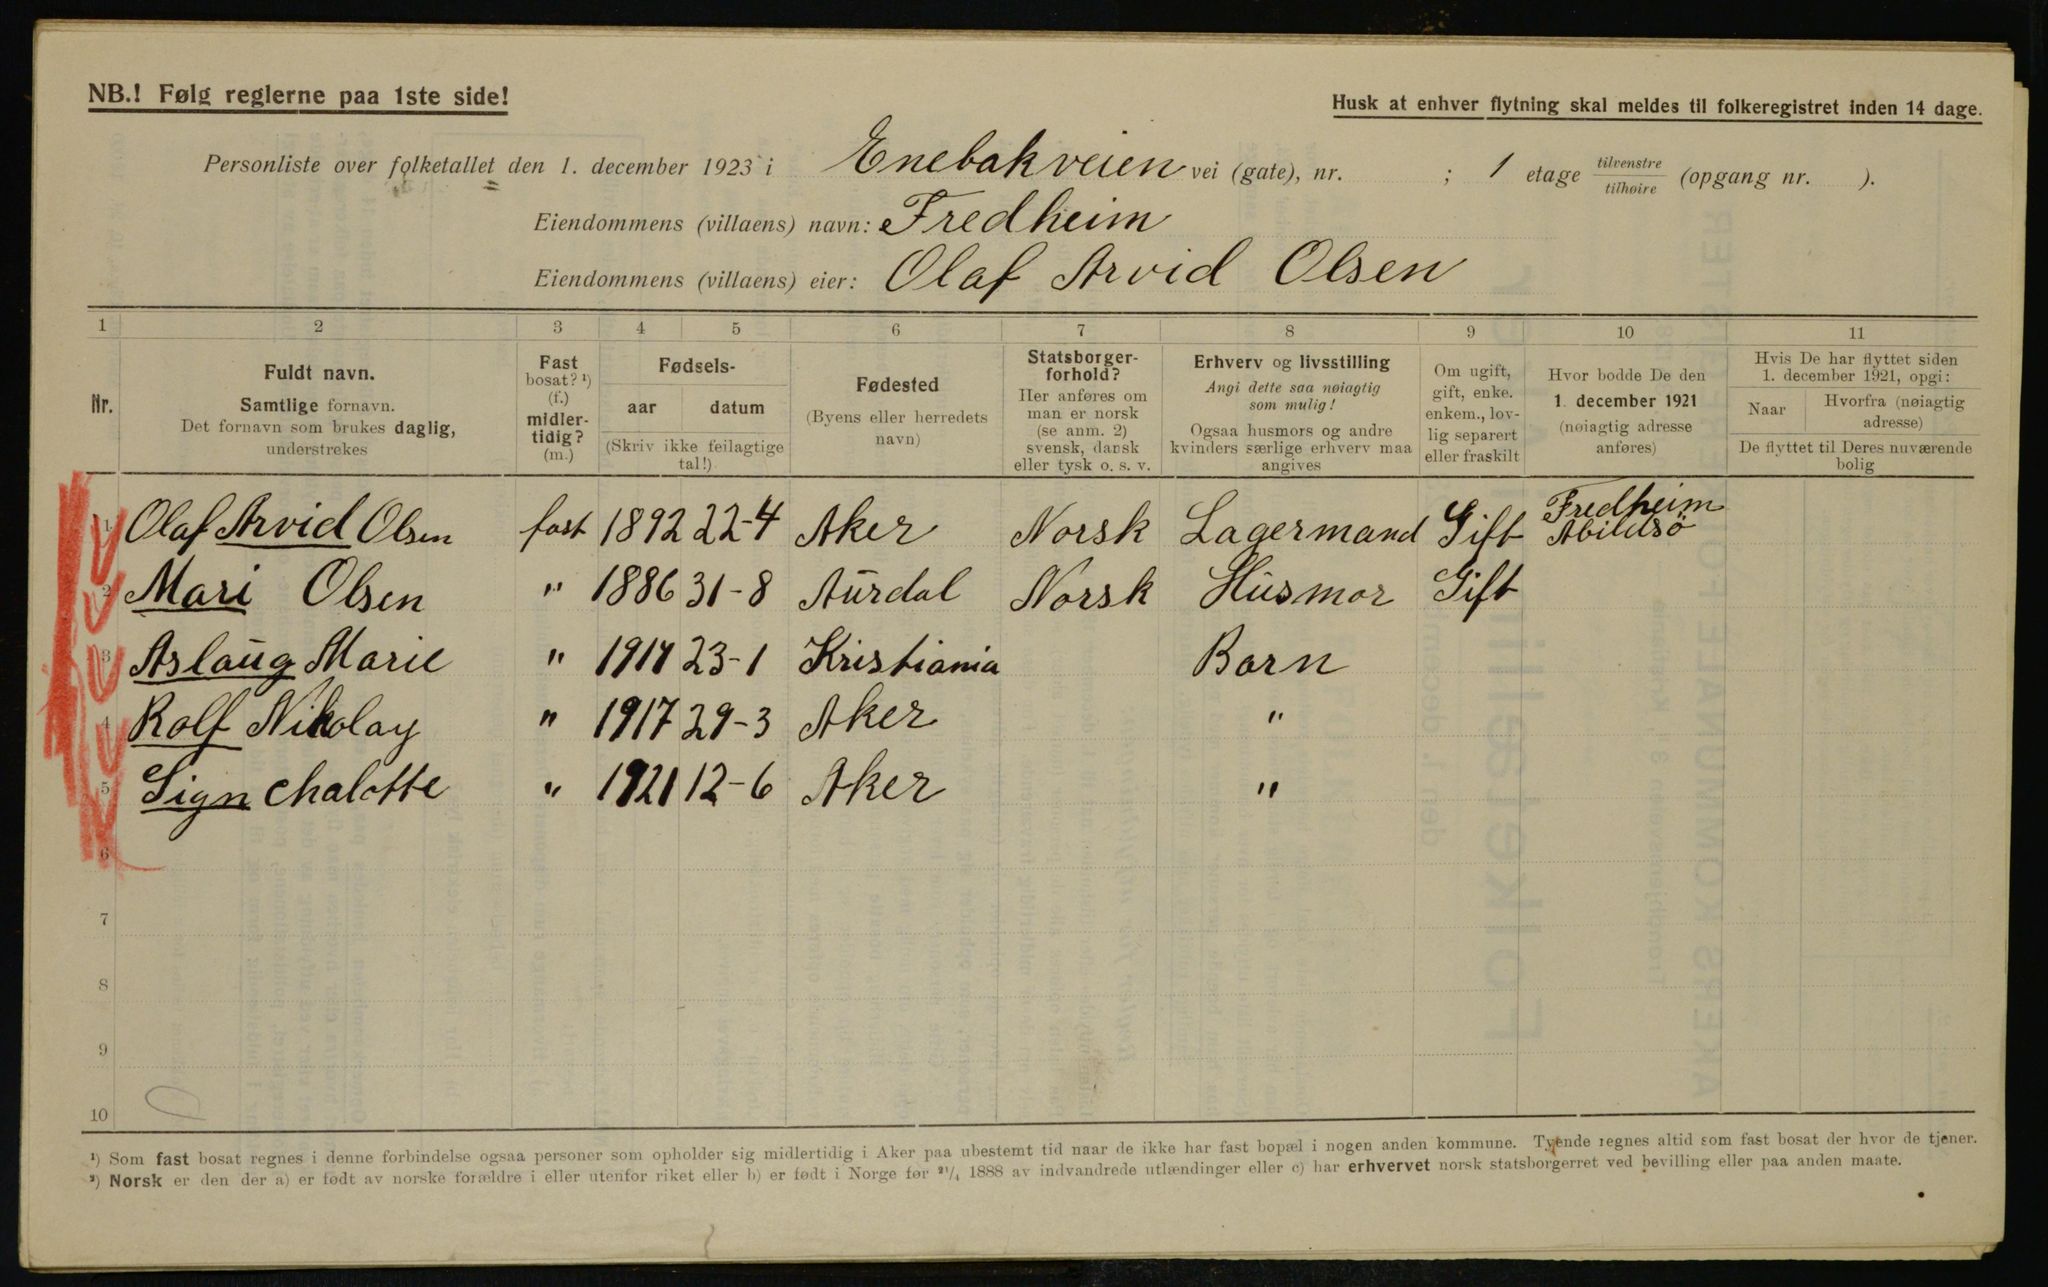 NB.! Følg reglerne paa 1ste side!
Husk at enhver flytning skal meldes til folkeregistret inden 14 dage.
Personliste over folketallet den 1. december 1923 i Enebakveien vei (gate), nr. ; 1 etage tilvenstre / tilhøire (opgang nr. ).
Eiendommens (villaens) navn: Fredheim
Eiendommens (villaens) eier: Olaf Arvid Olsen
1 2 3 4 5 6 7 8 9 10 11
Nr.
Fuldt navn.
Samtlige fornavn.
Det fornavn som brukes daglig,
understrekes
Fast
bosat? ¹)
(f.)
midler-
tidig?
(m.)
Fødsels-
aar datum
(Skriv ikke feilagtige
tal!)
Fødested
(Byens eller herredets
navn)
Statsborger-
forhold?
Her anføres om
man er norsk
(se anm. 2)
svensk, dansk
eller tysk o. s. v.
Erhverv og livsstilling
Angi dette saa nøiagtig
som mulig!
Ogsaa husmors og andre
kvinders særlige erhverv maa
angives
Om ugift,
gift, enke.
enkem., lov-
lig separert
eller fraskilt
Hvor bodde De den
1. december 1921
(nøiagtig adresse
anføres)
Hvis De har flyttet siden
1. december 1921, opgi:
Naar Hvorfra (nøiagtig
adresse)
De flyttet til Deres nuværende
bolig
1 Olaf Arvid Olsen fast 1892 22-4 Aker Norsk Lagermand Gift Fredheim Abildsö
2 Mari Olsen " 1886 31-8 Aurdal Norsk Husmor Gift
3 Aslaug Marie " 1914 23-1 Kristiania Barn
4 Rolf Nikolay " 1917 29-3 Aker "
5 Sign Chalotte " 1921 12-6 Aker "
6
7
8
9
10
¹) Som fast bosat regnes i denne forbindelse ogsaa personer som opholder sig midlertidig i Aker paa ubestemt tid naar de ikke har fast bopæl i nogen anden kommune. Tyende regnes altid som fast bosat der hvor de tjener.
²) Norsk er den der a) er født av norske forældre i eller utenfor riket eller b) er født i Norge før ²¹/₄ 1888 av indvandrede utlændinger eller c) har erhvervet norsk statsborgerret ved bevilling eller paa anden maate.